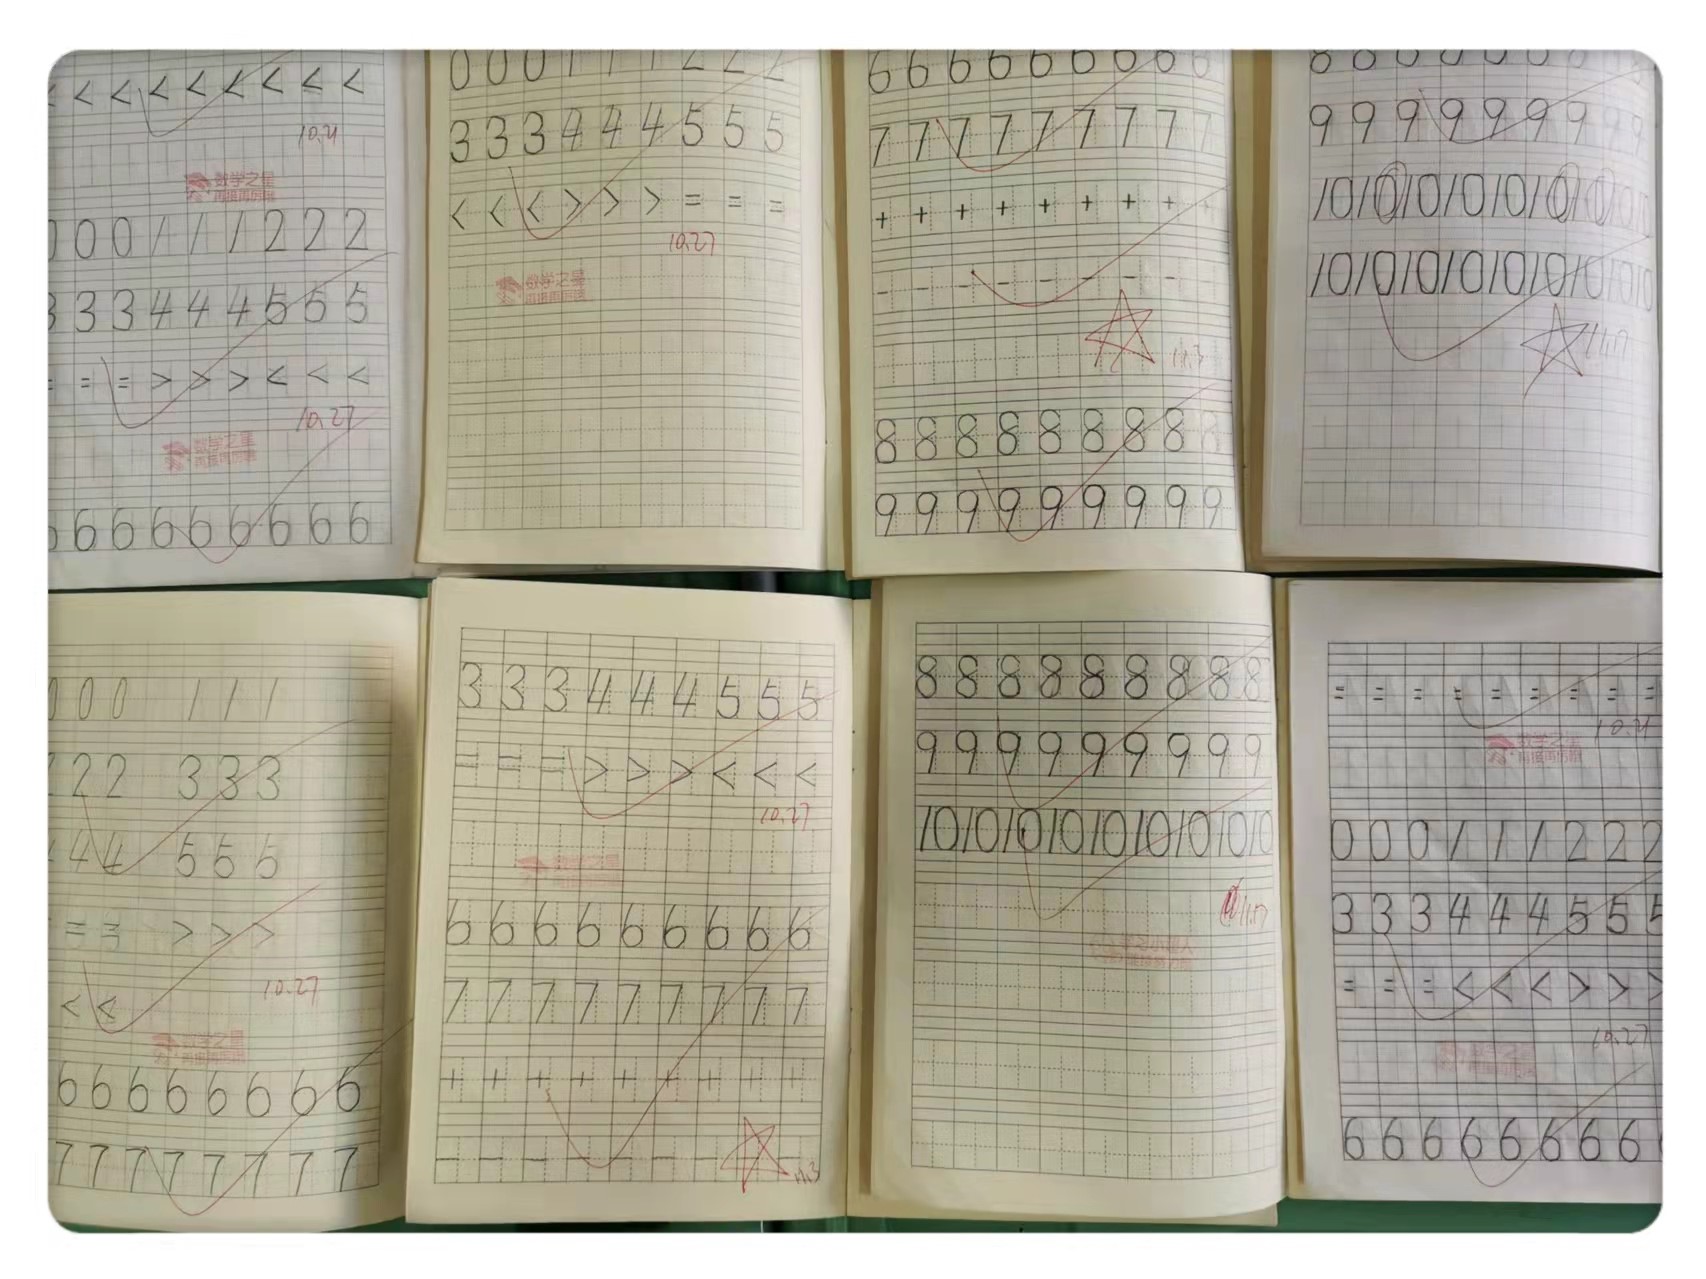 < < < < < < < <
10.21
数学之星
再接再厉哦
0 0 1 1 1 2 2 2
3 3 3 4 4 4 5 5 5
= = > > > < < <
10.27
数学之星
再接再厉哦
6 6 6 6 6 6 6 6
0 0 0 1 1 1 2 2 2
3 3 3 4 4 4 5 5 5
< < < > > > = = =
10.27
数学之星
再接再厉哦
6 6 6 6 6 6 6 6 6
7 7 7 7 7 7 7 7 7
+ + + + + + + + +
- - - - - - - -
11.3
8 8 8 8 8 8 8 8 8
9 9 9 9 9 9 9 9 9
8 8 8 8 8 8 8 8
9 9 9 9 9 9 9 9 9
10 10 10 10 10 10 10 10
10 10 10 10 10 10 10 10
11.17
0 0 1 1 1
2 2 3 3 3
4 4 5 5 5
= = > > >
10.27
< <
数学之星
再接再厉哦
6 6 6 6 6 6 6 6
7 7 7 7 7 7 7 7
3 3 3 4 4 4 5 5 5
= = = > > > < < <
10.27
数学之星
6 6 6 6 6 6 6 6 6
7 7 7 7 7 7 7 7 7
+ + + + + + + + +
- - - - - - - - -
11.3
8 8 8 8 8 8 8 8 8
9 9 9 9 9 9 9 9 9
10 10 10 10 10 10 10 10
11.17
= = = = = = = = =
10.21
数学之星
再接再厉哦
0 0 0 1 1 1 2 2 2
3 3 3 4 4 4 5 5 5
= = = < < < > > >
10.27
数学之星
6 6 6 6 6 6 6 6